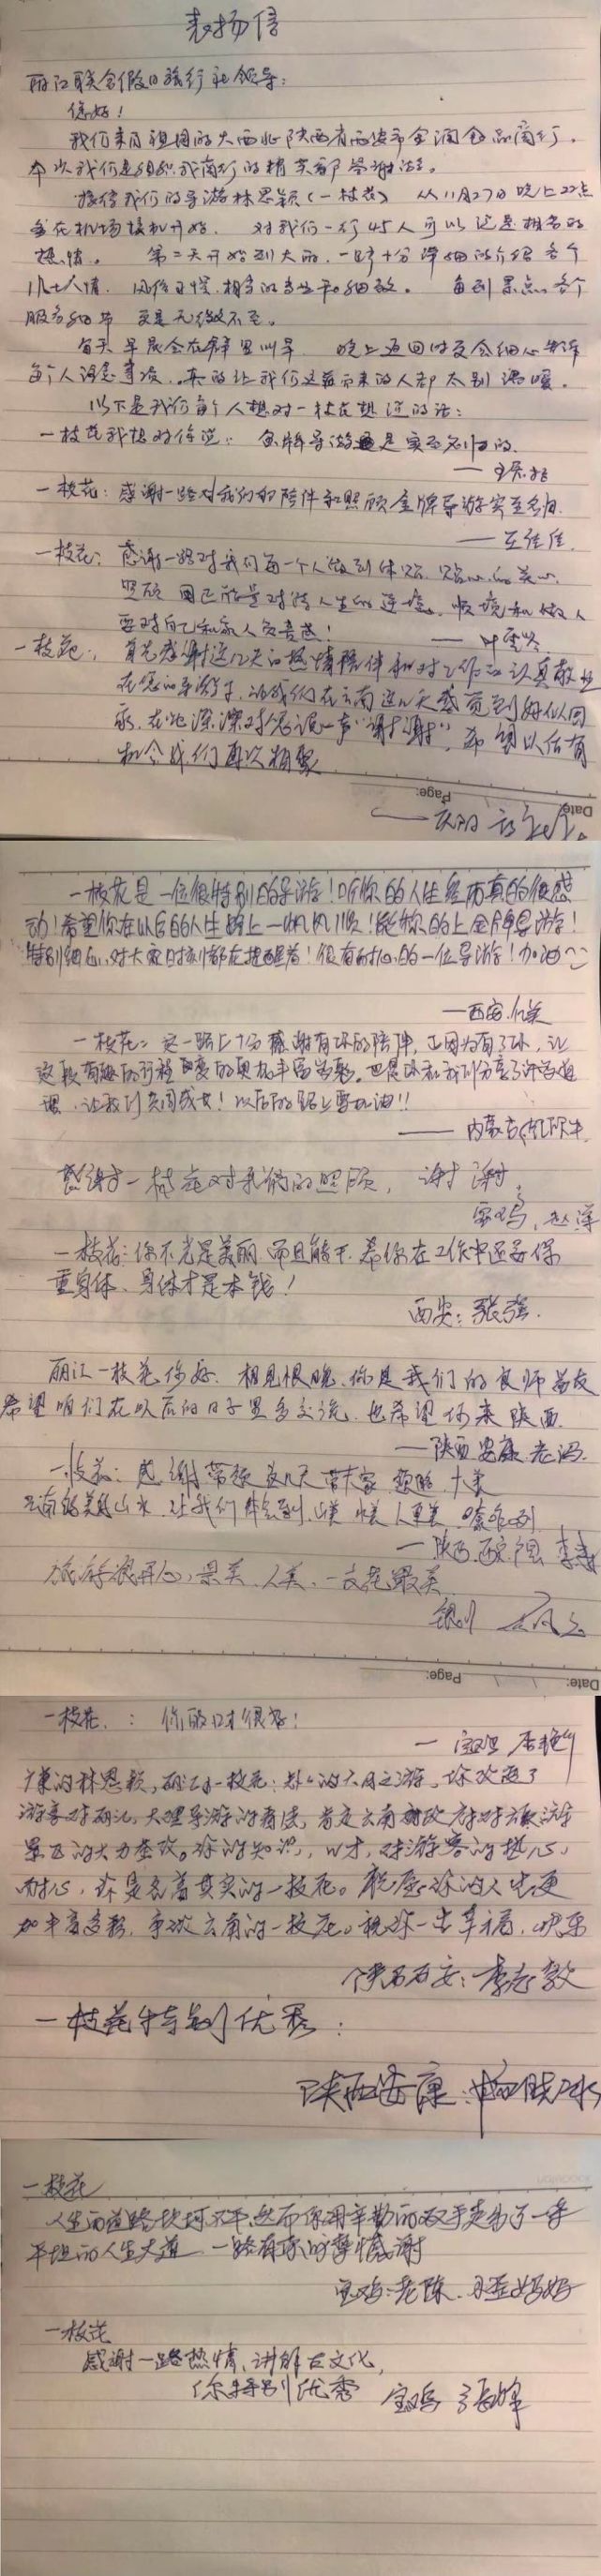 表扬信
丽江联合假日旅行社领导:
您好!
我们来自祖国的大西北陕西省西安市金润食品商行,
本次我们是组织我商行的精英部答谢游。
接待我们的导游林思颖(一枝花) 从11月27日晚上22点
多在机场接机开始, 对我们一行45人可以说是相当的
热情。 第二天开始到大雨,一路十分详细的介绍各个
风土人情 风俗习惯,相当的专业和细致。 每到景点各个
服务细节 更是无微不至。
每天早晨会在群里叫早 晚上返回时更会细心告诉
每个人注意事项,真的让我们这远而来的人都太别温暖。
以下是我们每个人想对一枝花想说的话:
一枝花我想对你说: 金牌导游是实至名归的.
一枝花: 感谢一路对我们的陪伴和照顾金牌导游实至名归.
— 王佳佳.
一枝花: 感谢一路对我们每一个人做到体贴、贴心的关心,
照顾 用正能量对待人生的逆境,顺境和做人
要对自己和家人负责感!
一枝花: 首先感谢这几天的热情陪伴和对工作的认真敬业
在您的导游下,让我们在云南这几天感觉到好似回
家,在此深深对您说一声“谢谢”,希望以后有
机会我们再次相聚
Date: Page:
一枝花是一位很特别的导游!听你的人生经历真的很感
动!希望你在以后的人生路上一帆风顺!能你的上金牌导游!
特别细心,对大家时刻都在提醒着!很有耐心的一位导游!加油~
—西安.
一枝花: 这一路上十分感谢有你的陪伴,正因为有了你,让
这段有趣的行程变的更加丰富多彩,也是你和我们分享了许多道
理,让我们共同成长!以后的路上要加油!!
—— 内蒙古
感谢一枝花对我们的照顾, 谢谢
宝鸡, 赵萍
一枝花:你不光是美丽.而且能干.希你在工作中还要保
重身体、身体才是本钱!
西安:张强.
丽江一枝花你好. 相见恨晚、你是我们的良师益友
希望咱们在以后的日子里多交流.也希望你来陕西.
—陕西安康 老冯.
一枝花: 感谢带领这几天带大家领略大美
云南的美丽山水,让我们体会到山美水美人更美
— 陕西 李
旅游很开心,景美、人美、一枝花最美
Date: Page:
一枝花.: 你的口才很好!
— 宝鸡
可亲的林思颖,丽江一枝花:热心的六日之游,你改变了
游客对丽江,大理导游的看法,肯定云南省政府对旅游
景区的大力整改。你的知识,口才,对游客的热心,
耐心,你是名普其实的一枝花。祝愿你的人生更
加丰富多彩,争做云南的一枝花。祝你一生幸福,快乐
陕西西安:李志
一枝花特别优秀:
陕西安康:
一枝花
人生的道路坎坷不平,然而你用辛勤的双手走出了一条
平坦的人生大道 一路有你的热情感谢
宝鸡:老陈.
一枝花
感谢一路热情、讲解古文化,
你特别优秀 宝鸡 张峰